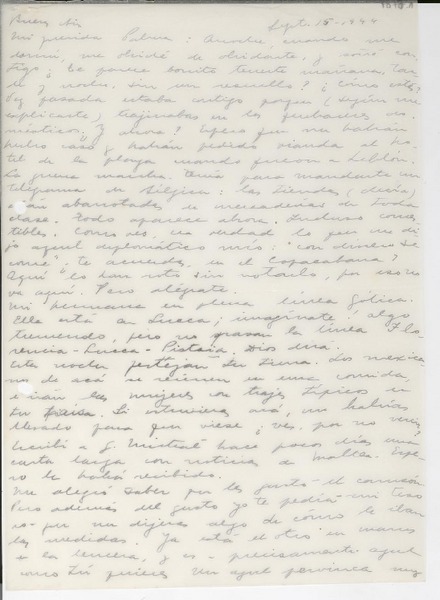 Buenos Aires Sept. 15-1944
Mi querida Palma: Anoche, cuando me
dormí, me olvidé de olvidarte, y soñé con-
tigo ¿te parece bonito tenerte mañana, tar-
de y noche, sin un resuello? ¿Cómo estás?
explicarte) trajinabas en los
¿Y ahora? Espero que no habrán
hecho caso y habrán pedido vianda al ho-
tel de la playa cuando fueron a Leblón.
La guerra marcha. Tenía para mandarte un
telegrama de Bélgica: las tiendas
están abarrotadas de mercaderías de toda
clase. Todo aparece ahora. Incluso comes-
tibles. Como ves, era verdad lo que me di-
jo aquel diplomático mío: "con dinero se
come", te acuerdas, en el Copacabana?
Aquí no
va aquí. Pero alégrate.
Mi hermana en plena línea gótica.
Ella está en Lucca; imagínate! algo
tremendo, pero no pasan la línea Flo-
rencia-Lucca-Pistoia. Dios dirá.
Esta noche festejan tu tierra. Los mexica-
nos de acá se reúnen en una comida,
e irán las mujeres con trajes típicos de
tu país. Si estuvieras acá, me habrías
llevado para que viese ¿ves? por no venir
Escribí a G. Mistral hace pocos días una
carta larga con noticias de Mallea. Espe-
ro la habrá recibido.
Me alegró saber que les gustó el camisón
Pero además del gusto yo te pedía
que me dijeras algo de cómo le
las medidas. Ya está el otro en manos
de la lencera, y es precisamente azul
como tú quieres. Un azul pervinca muy